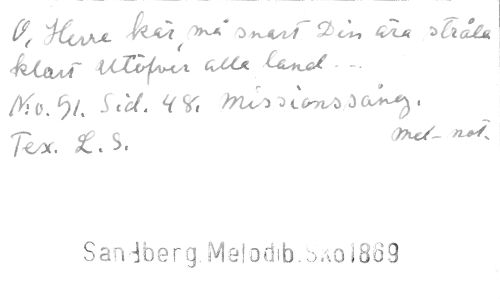 O, Herre kär, må snart Din ära stråla
klart utöfver alla land ...
N:o. 51. Sid. 48. Missionssång.
Tex. L. S. Mel- not.
Sandberg. Melodib. Sko 1869